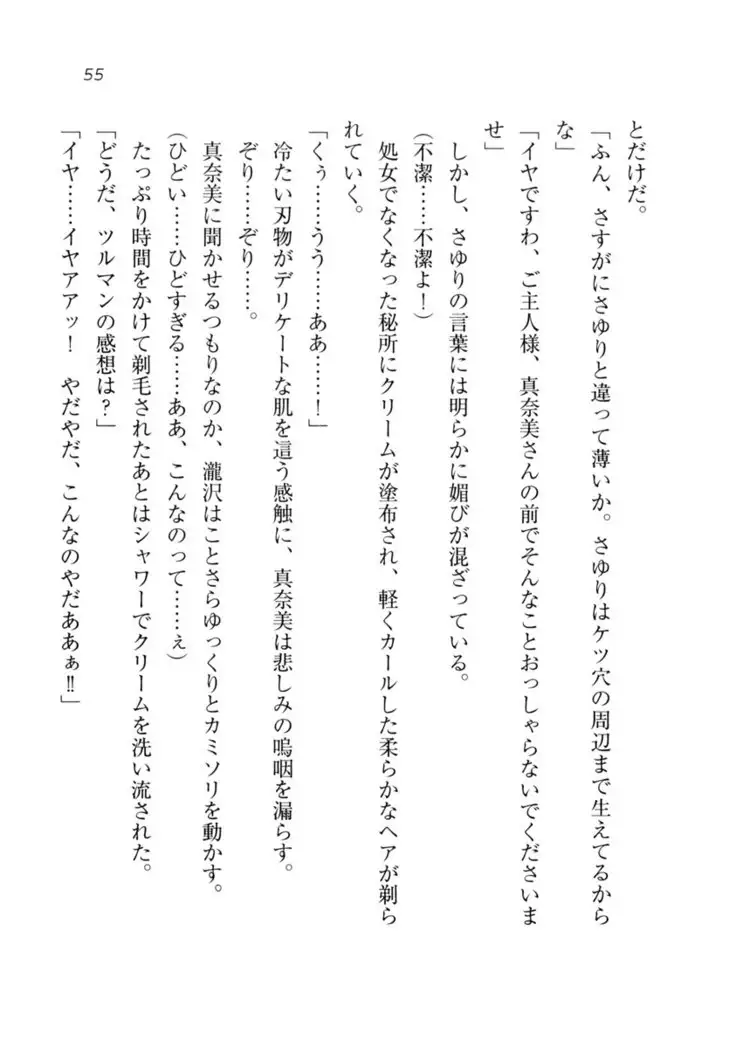 55
とだけだ。
「ふん、さすがにさゆりと違って薄いか。さゆりはケツ穴の周辺まで生えてるから
な」
「イヤですわ、ご主人様、真奈美さんの前でそんなことおっしゃらないでくださいま
せ」
しかし、さゆりの言葉には明らかに媚びが混ざっている。
(不潔……不潔よ！)
処女でなくなった秘所にクリームが塗布され、軽くカールした柔らかなヘアが剃ら
れていく。
「くぅ……うう……ああ……！」
冷たい刃物がデリケートな肌を這う感触に、真奈美は悲しみの嗚咽を漏らす。
ぞり……ぞり……。
真奈美に聞かせるつもりなのか、瀧沢はことさらゆっくりとカミソリを動かす。
(ひどい……ひどすぎる……ああ、こんなのって……ぇ)
たっぷり時間をかけて剃毛されたあとはシャワーでクリームを洗い流された。
「どうだ、ツルマンの感想は？」
「イヤ……イヤアアッ！　やだやだ、こんなのやだああぁ‼」